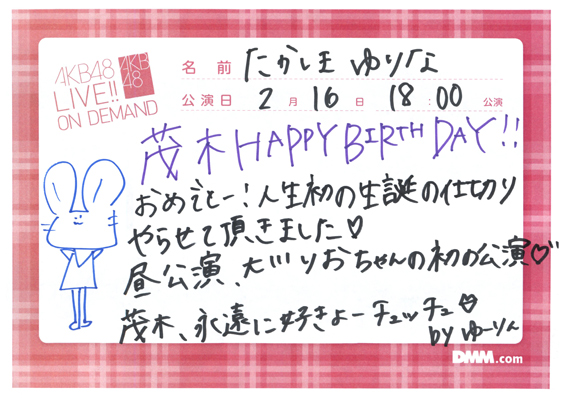 AKB48
LIVE!!
ON DEMAND
AKB
48
名前 たかしま ゆりな
公演日 2月16日 18:00公演
茂木HAPPY BIRTHDAY!!
おめでとー!人生初の生誕の仕切り
やらせて頂きました♡
昼公演、大川りおちゃんの初の公演♡
茂木、永遠に好きよーチュッチュ♡
by ゆーりん
DMM.com